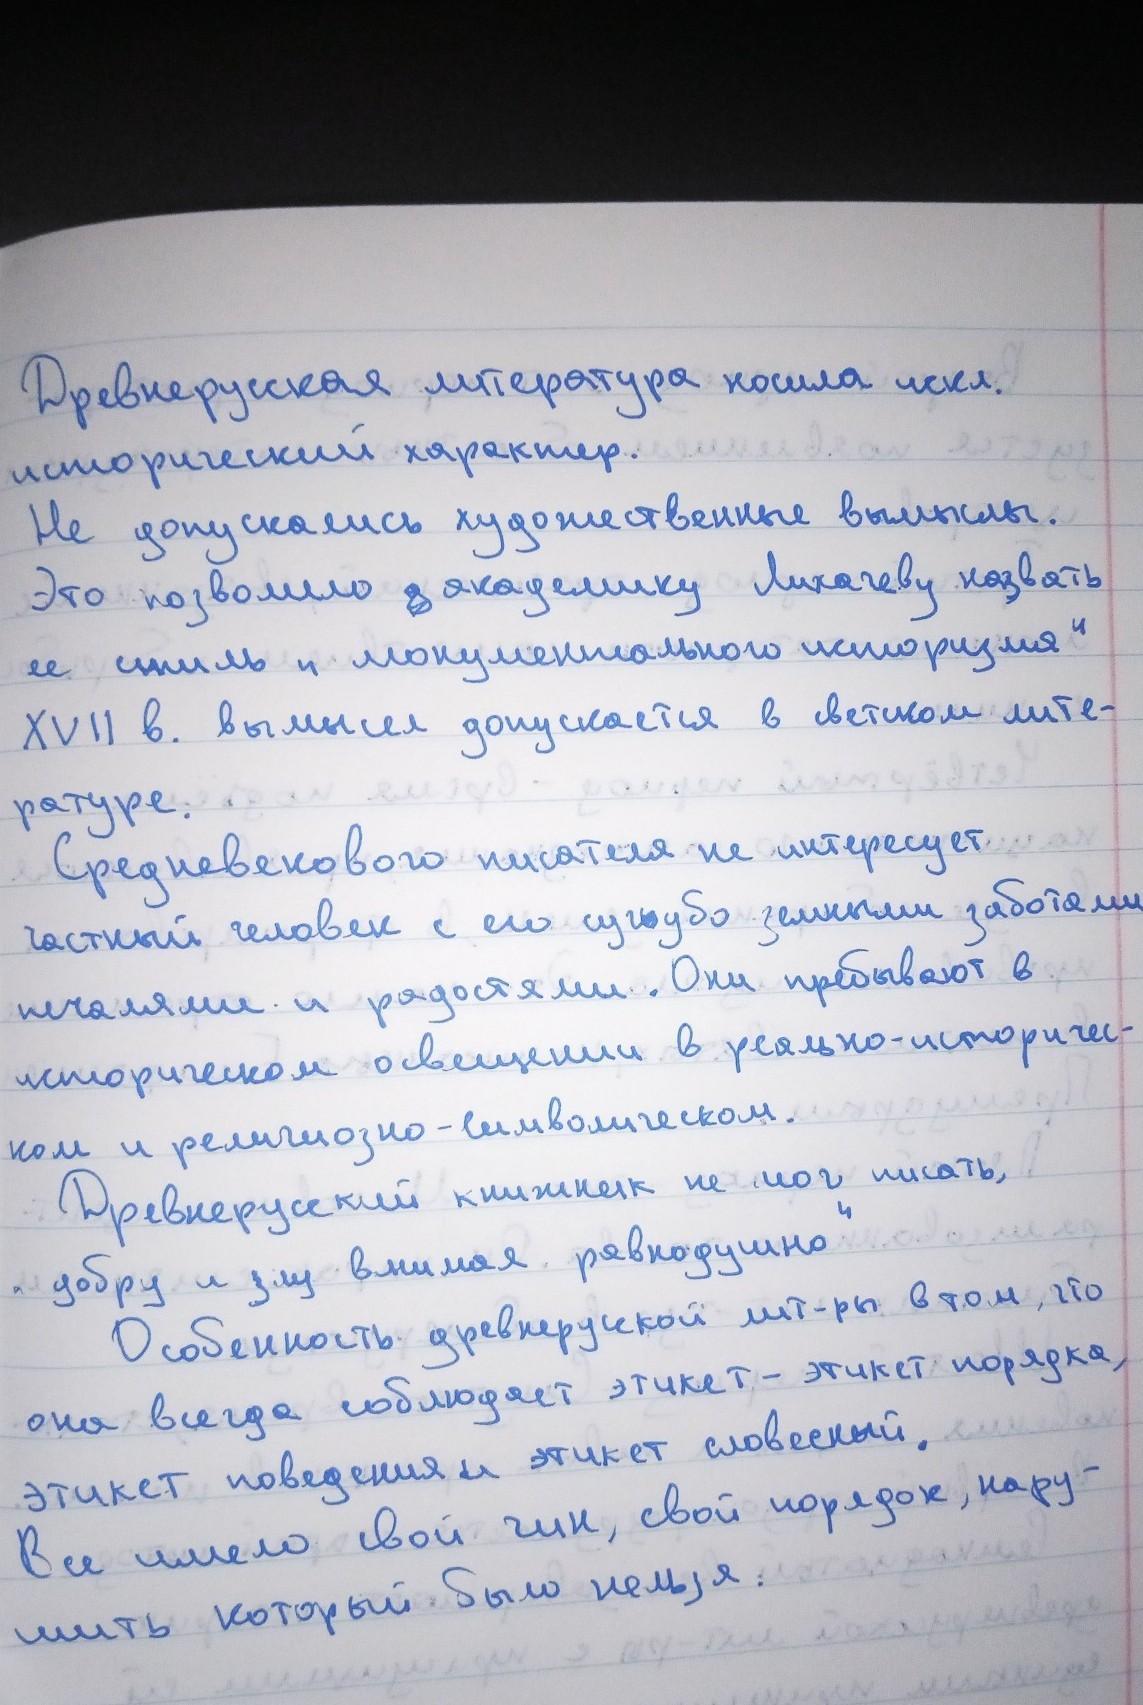 Древнерусская литература носила искл.
исторический характер.
Не допускались художественные вымыслы.
Это позволило академику Лихачеву назвать
ее стиль „монументального историзма“
XVII в. вымысел допускается в светском лите-
ратуре.
Средневекового писателя не интересует
частный человек с его сугубо земными заботами
печалями и радостями. Они пребывают в
историческом освещении в реально-историчес-
ком и религиозно-символическом.
Древнерусский книжник не мог писать,
„добру и злу внимая равнодушно“
Особенность древнерусской лит-ры в том, что
она всегда соблюдает этикет - этикет порядка,
этикет поведения и этикет словесный.
Все имело свой чин, свой порядок, нару-
шить который было нельзя.